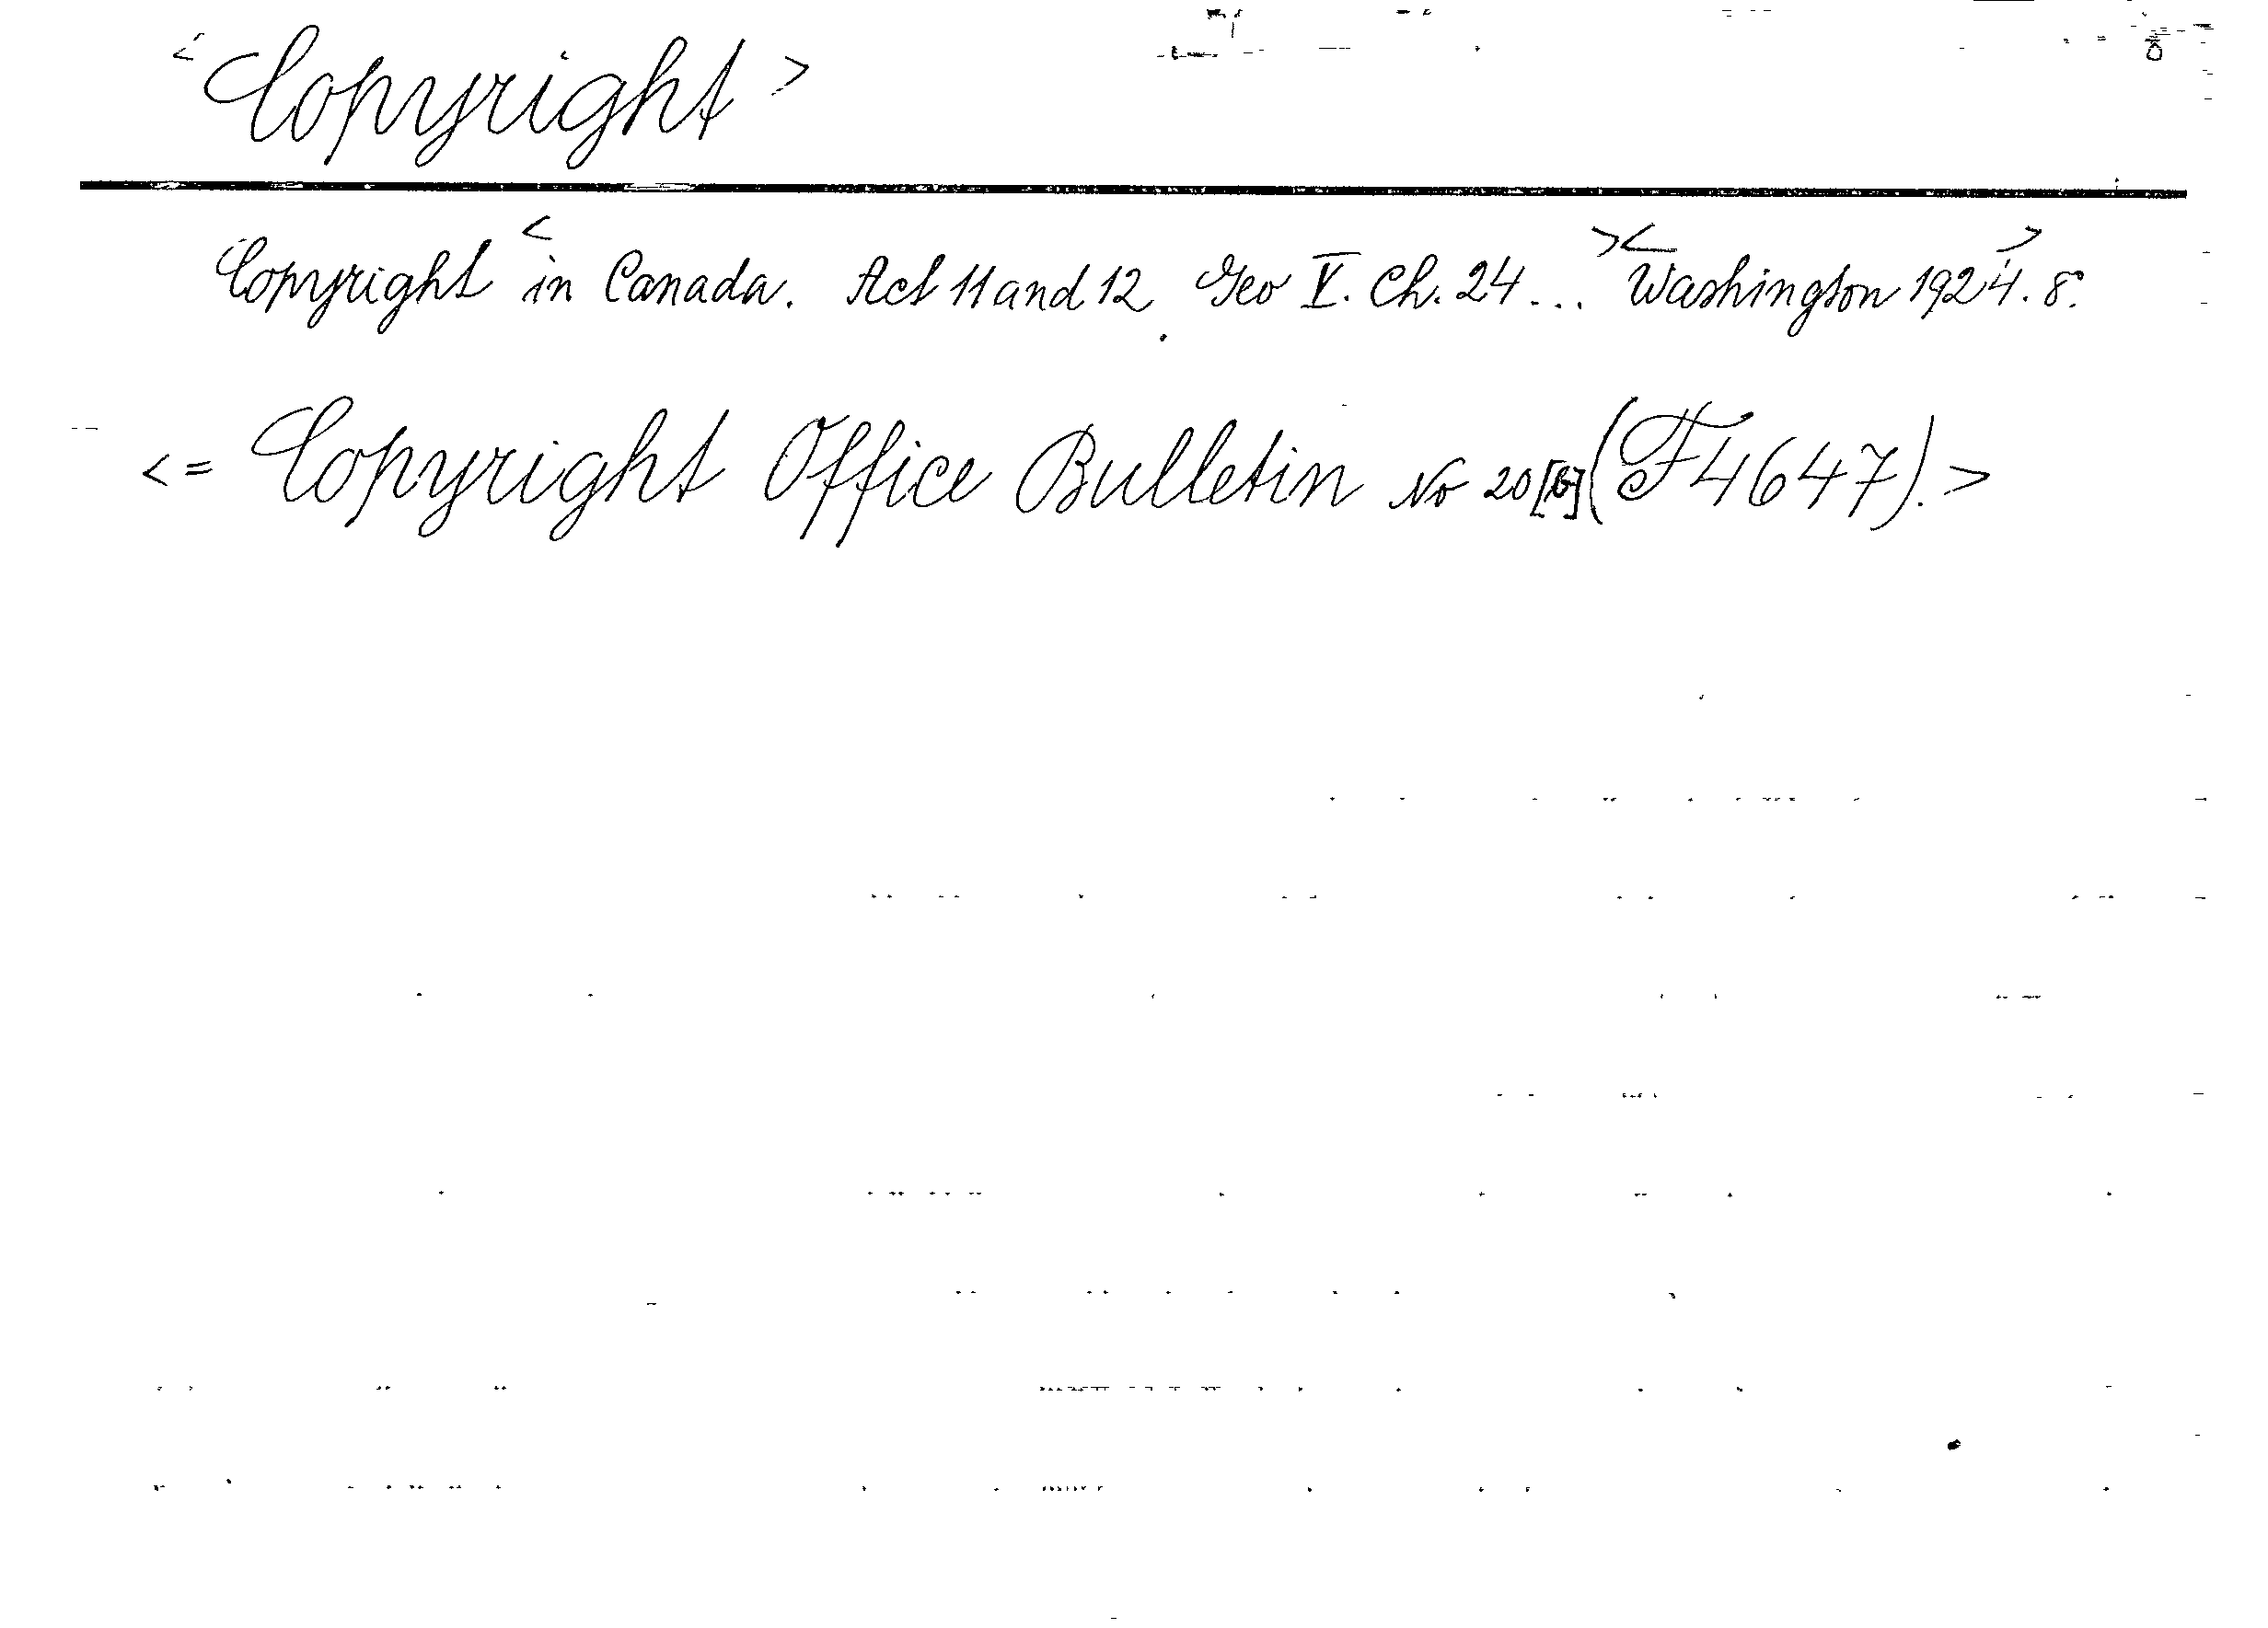 <Copyright>
Copyright <in Canada. Act 11 and 12. Geo V. Ch. 24 ... ><Washington 1924>. 8°.
<= Copyright Office Bulletin No 20 (F4647).>